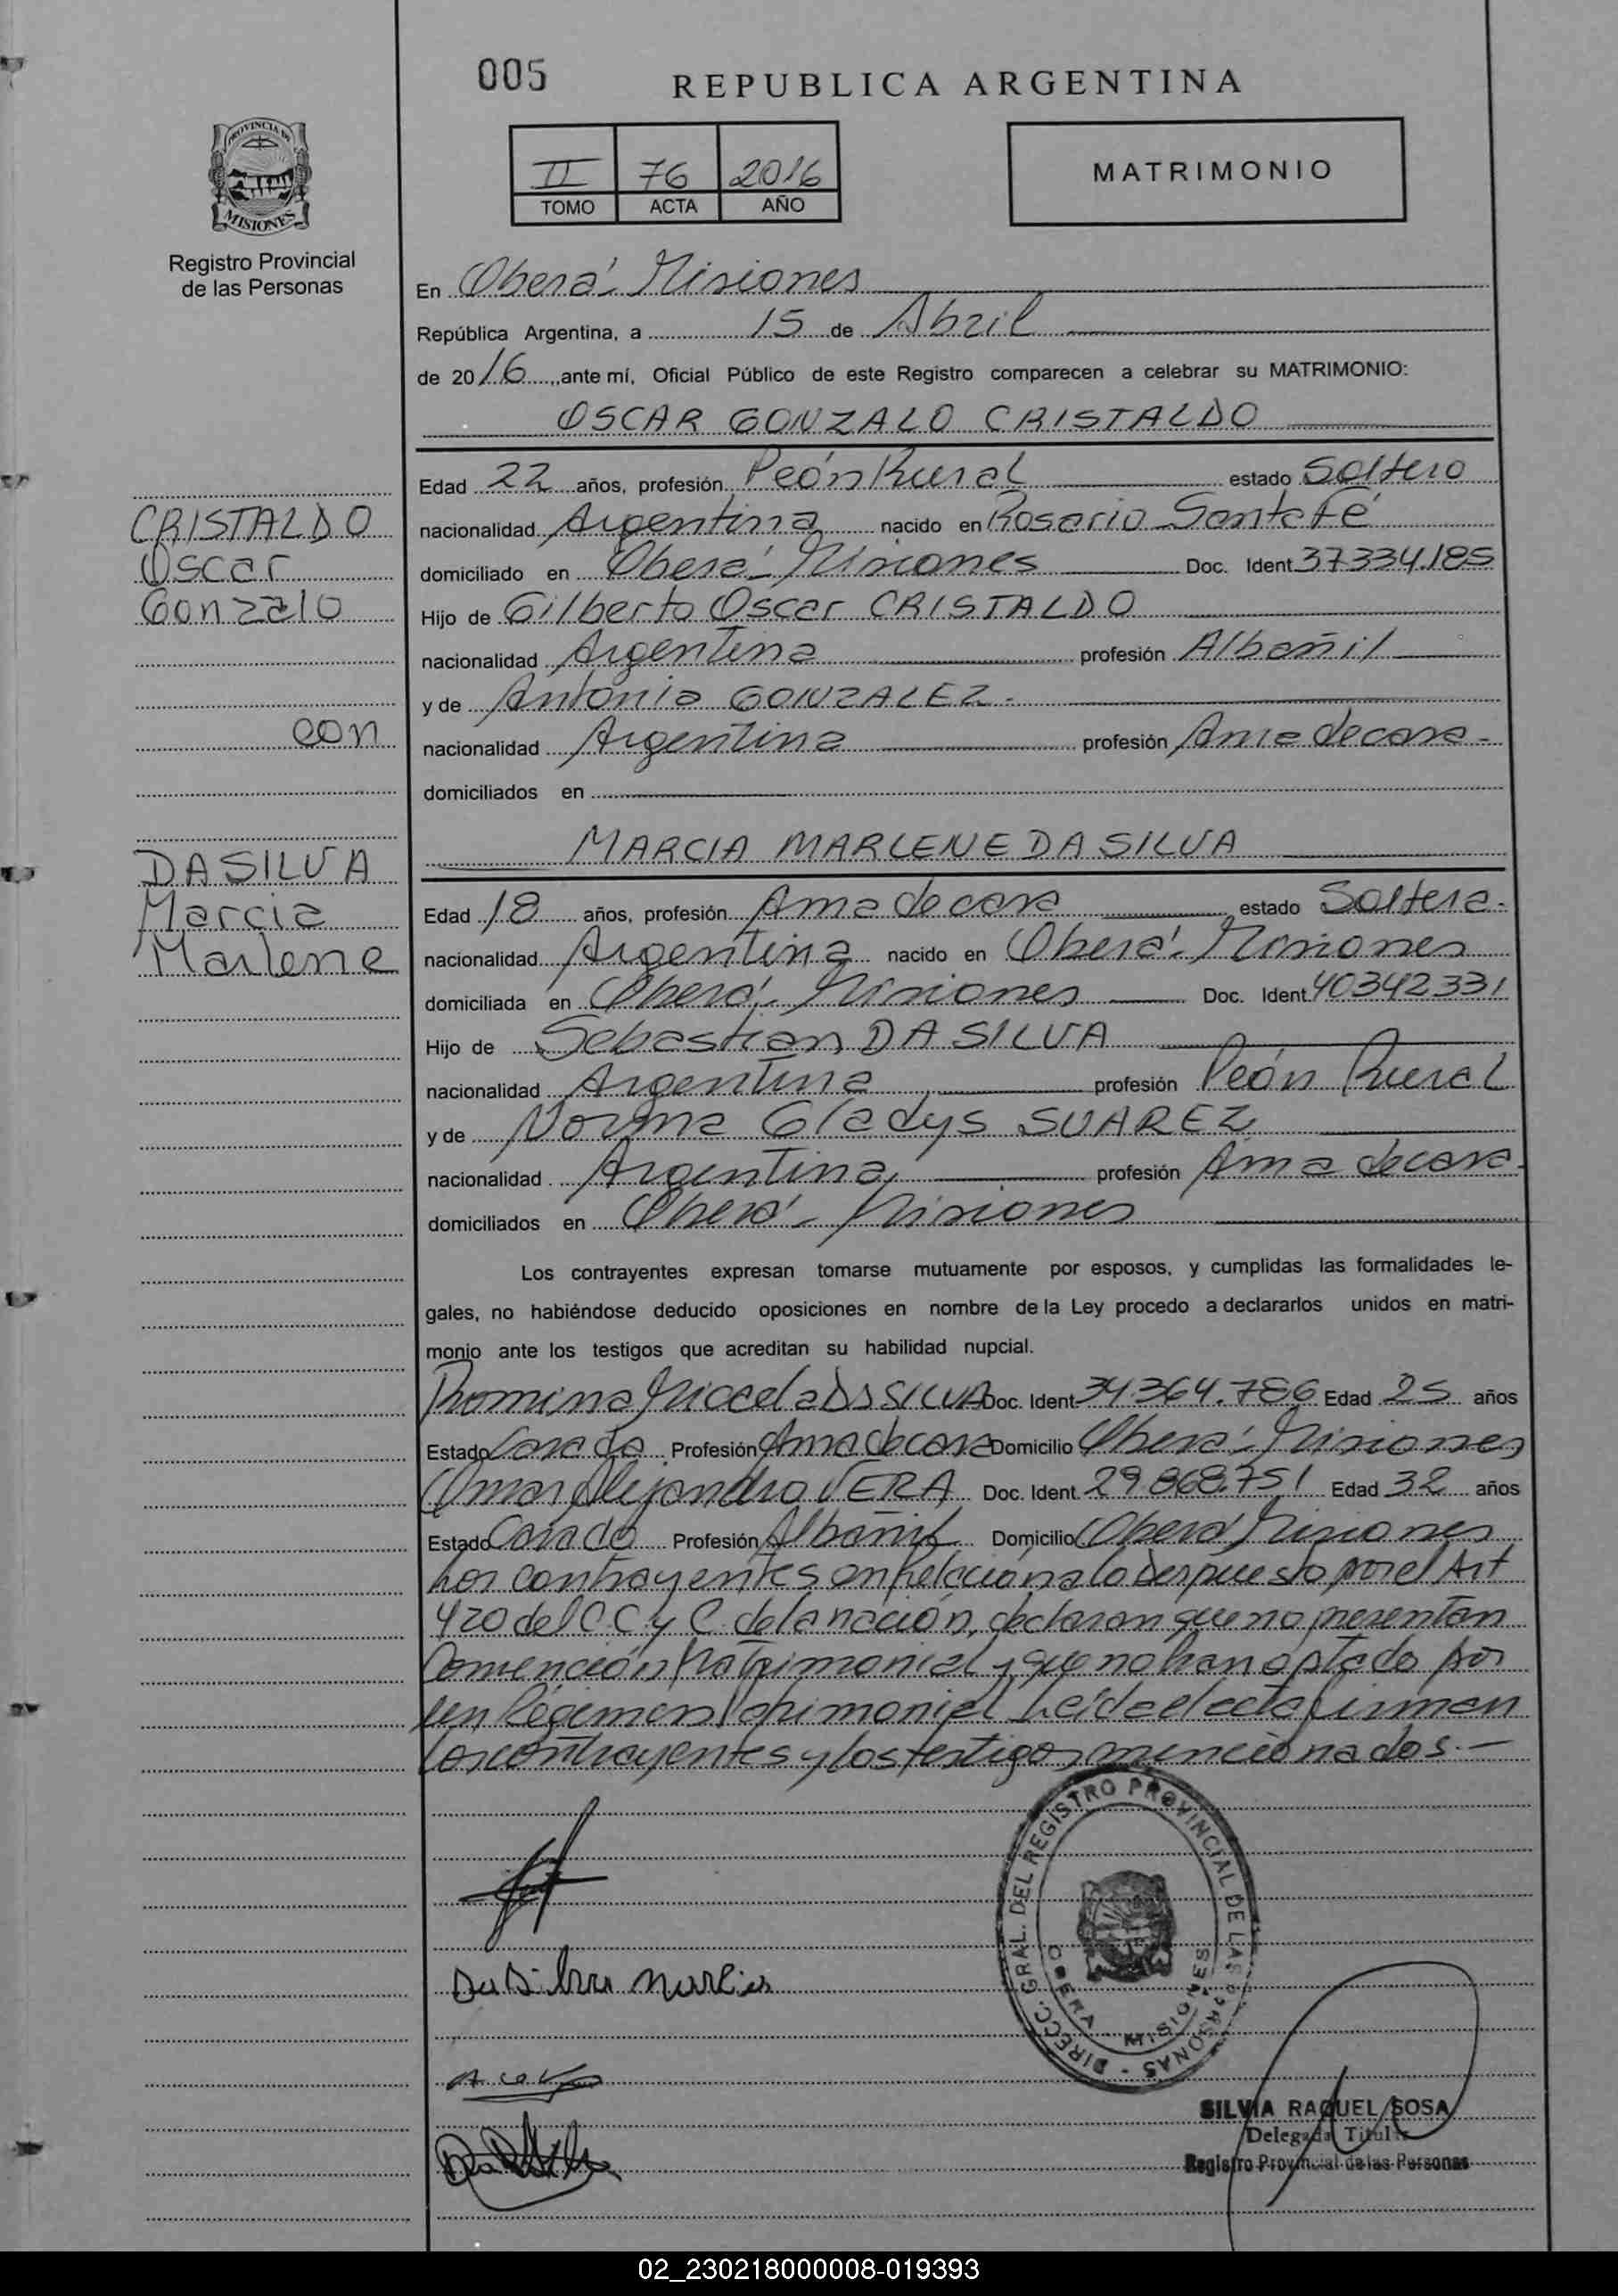 005
REPUBLICA ARGENTINA
PROVINCIA DE
MISIONES
Registro Provincial
de las Personas
II 76 2016
TOMO ACTA AÑO
MATRIMONIO
En Oberá - Misiones
República Argentina, a 15 de Abril
de 2016, ante mí, Oficial Público de este Registro comparecen a celebrar su MATRIMONIO:
OSCAR GONZALO CRISTALDO
Edad 22 años, profesión Peón Rural estado Soltero
nacionalidad Argentina nacido en Rosario - Santa Fé
domiciliado en Oberá - Misiones Doc. Ident 37334.185
Hijo de Gilberto Oscar CRISTALDO
nacionalidad Argentina profesión Albañil
y de Antonia GONZALEZ.-
nacionalidad Argentina profesión Ama de casa -
domiciliados en
CRISTALDO
Oscar
Gonzalo
con
DA SILVA
Marcia
Marlene
MARCIA MARLENE DA SILVA
Edad 18 años, profesión Ama de casa estado Soltera -
nacionalidad Argentina nacido en Oberá - Misiones
domiciliada en Oberá - Misiones Doc. Ident 40342331
Hijo de Sebastian DA SILVA
nacionalidad Argentina profesión Peón Rural
y de Norma Gladys SUAREZ
nacionalidad Argentina profesión Ama de casa -
domiciliados en Oberá - Misiones
Los contrayentes expresan tomarse mutuamente por esposos, y cumplidas las formalidades le-
gales, no habiéndose deducido oposiciones en nombre de la Ley procedo a declararlos unidos en matri-
monio ante los testigos que acreditan su habilidad nupcial.
Romina DA SILVA Doc. Ident 34.364.786 Edad 25 años
Estado Casada Profesión Ama de casa Domicilio Oberá - Misiones
Omar Alejandro VERA Doc. Ident. 29.868.751 Edad 32 años
Estado Casado Profesión Albañil Domicilio Oberá Misiones
Los contrayentes en relación a lo despuesto por el Art
420 del C.C y C. de la nación, declaran que no presentan
Convención Matrimonial y que no han optado por
un Régimen Patrimonial. Leída el acta firman
los contrayentes y los testigos mencionados.-
Da Silva Marcia
DIRECC. GRAL. DEL REGISTRO PROVINCIAL DE LAS PERSONAS -
OBERA - MISIONES
SILVIA RAQUEL SOSA
Delegada Titular
Registro Provincial de las Personas
02_230218000008-019393